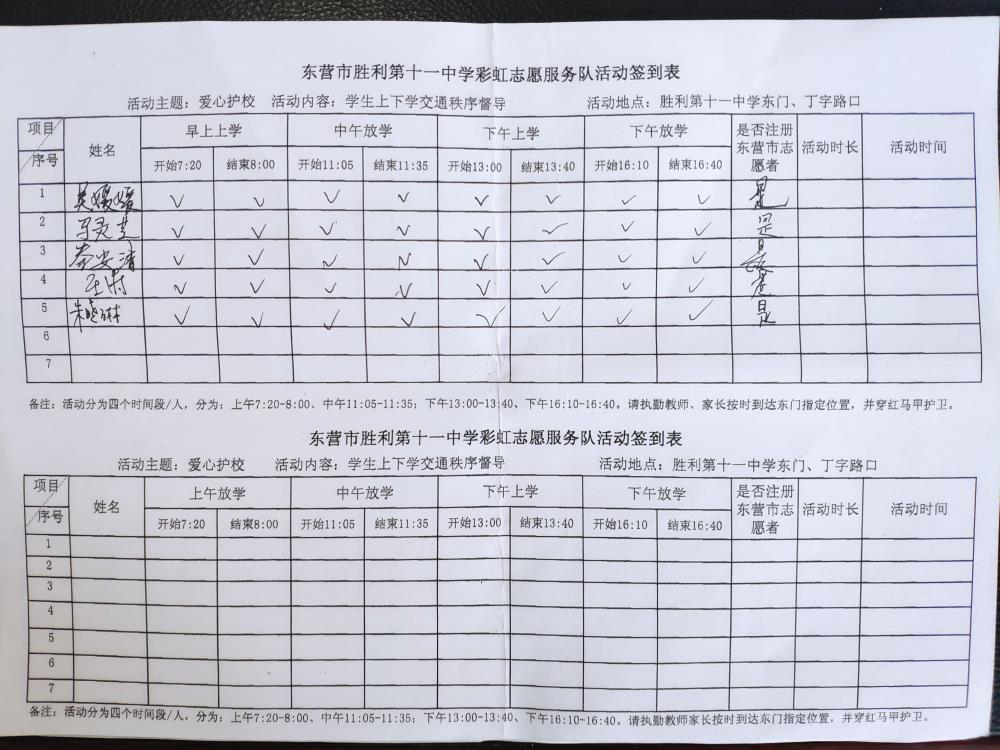 东营市胜利第十一中学彩虹志愿服务队活动签到表
活动主题：爱心护校 活动内容：学生上下学交通秩序督导 活动地点：胜利第十一中学东门、丁字路口
项目 早上上学 中午放学 下午上学 下午放学
序号 姓名 是否注册东营市志愿者 活动时长 活动时间
开始7:20 结束8:00 开始11:05 结束11:35 开始13:00 结束13:40 开始16:10 结束16:40
1 吴媛媛 ✓ ✓ ✓ ✓ ✓ ✓ ✓ ✓ 是
2 马灵芝 ✓ ✓ ✓ ✓ ✓ ✓ ✓ ✓ 是
3 秦安清 ✓ ✓ ✓ ✓ ✓ ✓ ✓ ✓ 是
4 王 ✓ ✓ ✓ ✓ ✓ ✓ ✓ ✓ 是
5 朱晓琳 ✓ ✓ ✓ ✓ ✓ ✓ ✓ ✓ 是
6
7
备注：活动分为四个时间段/人，分为：上午7:20-8:00、中午11:05-11:35；下午13:00-13:40、下午16:10-16:40。请执勤教师、家长按时到达东门指定位置，并穿红马甲护卫。
东营市胜利第十一中学彩虹志愿服务队活动签到表
活动主题：爱心护校 活动内容：学生上下学交通秩序督导 活动地点：胜利第十一中学东门、丁字路口
项目 上午放学 中午放学 下午上学 下午放学
序号 姓名 是否注册东营市志愿者 活动时长 活动时间
开始7:20 结束8:00 开始11:05 结束11:35 开始13:00 结束13:40 开始16:10 结束16:40
1
2
3
4
5
6
7
备注：活动分为四个时间段/人，分为：上午7:20-8:00、中午11:05-11:35；下午13:00-13:40、下午16:10-16:40。请执勤教师家长按时到达东门指定位置，并穿红马甲护卫。